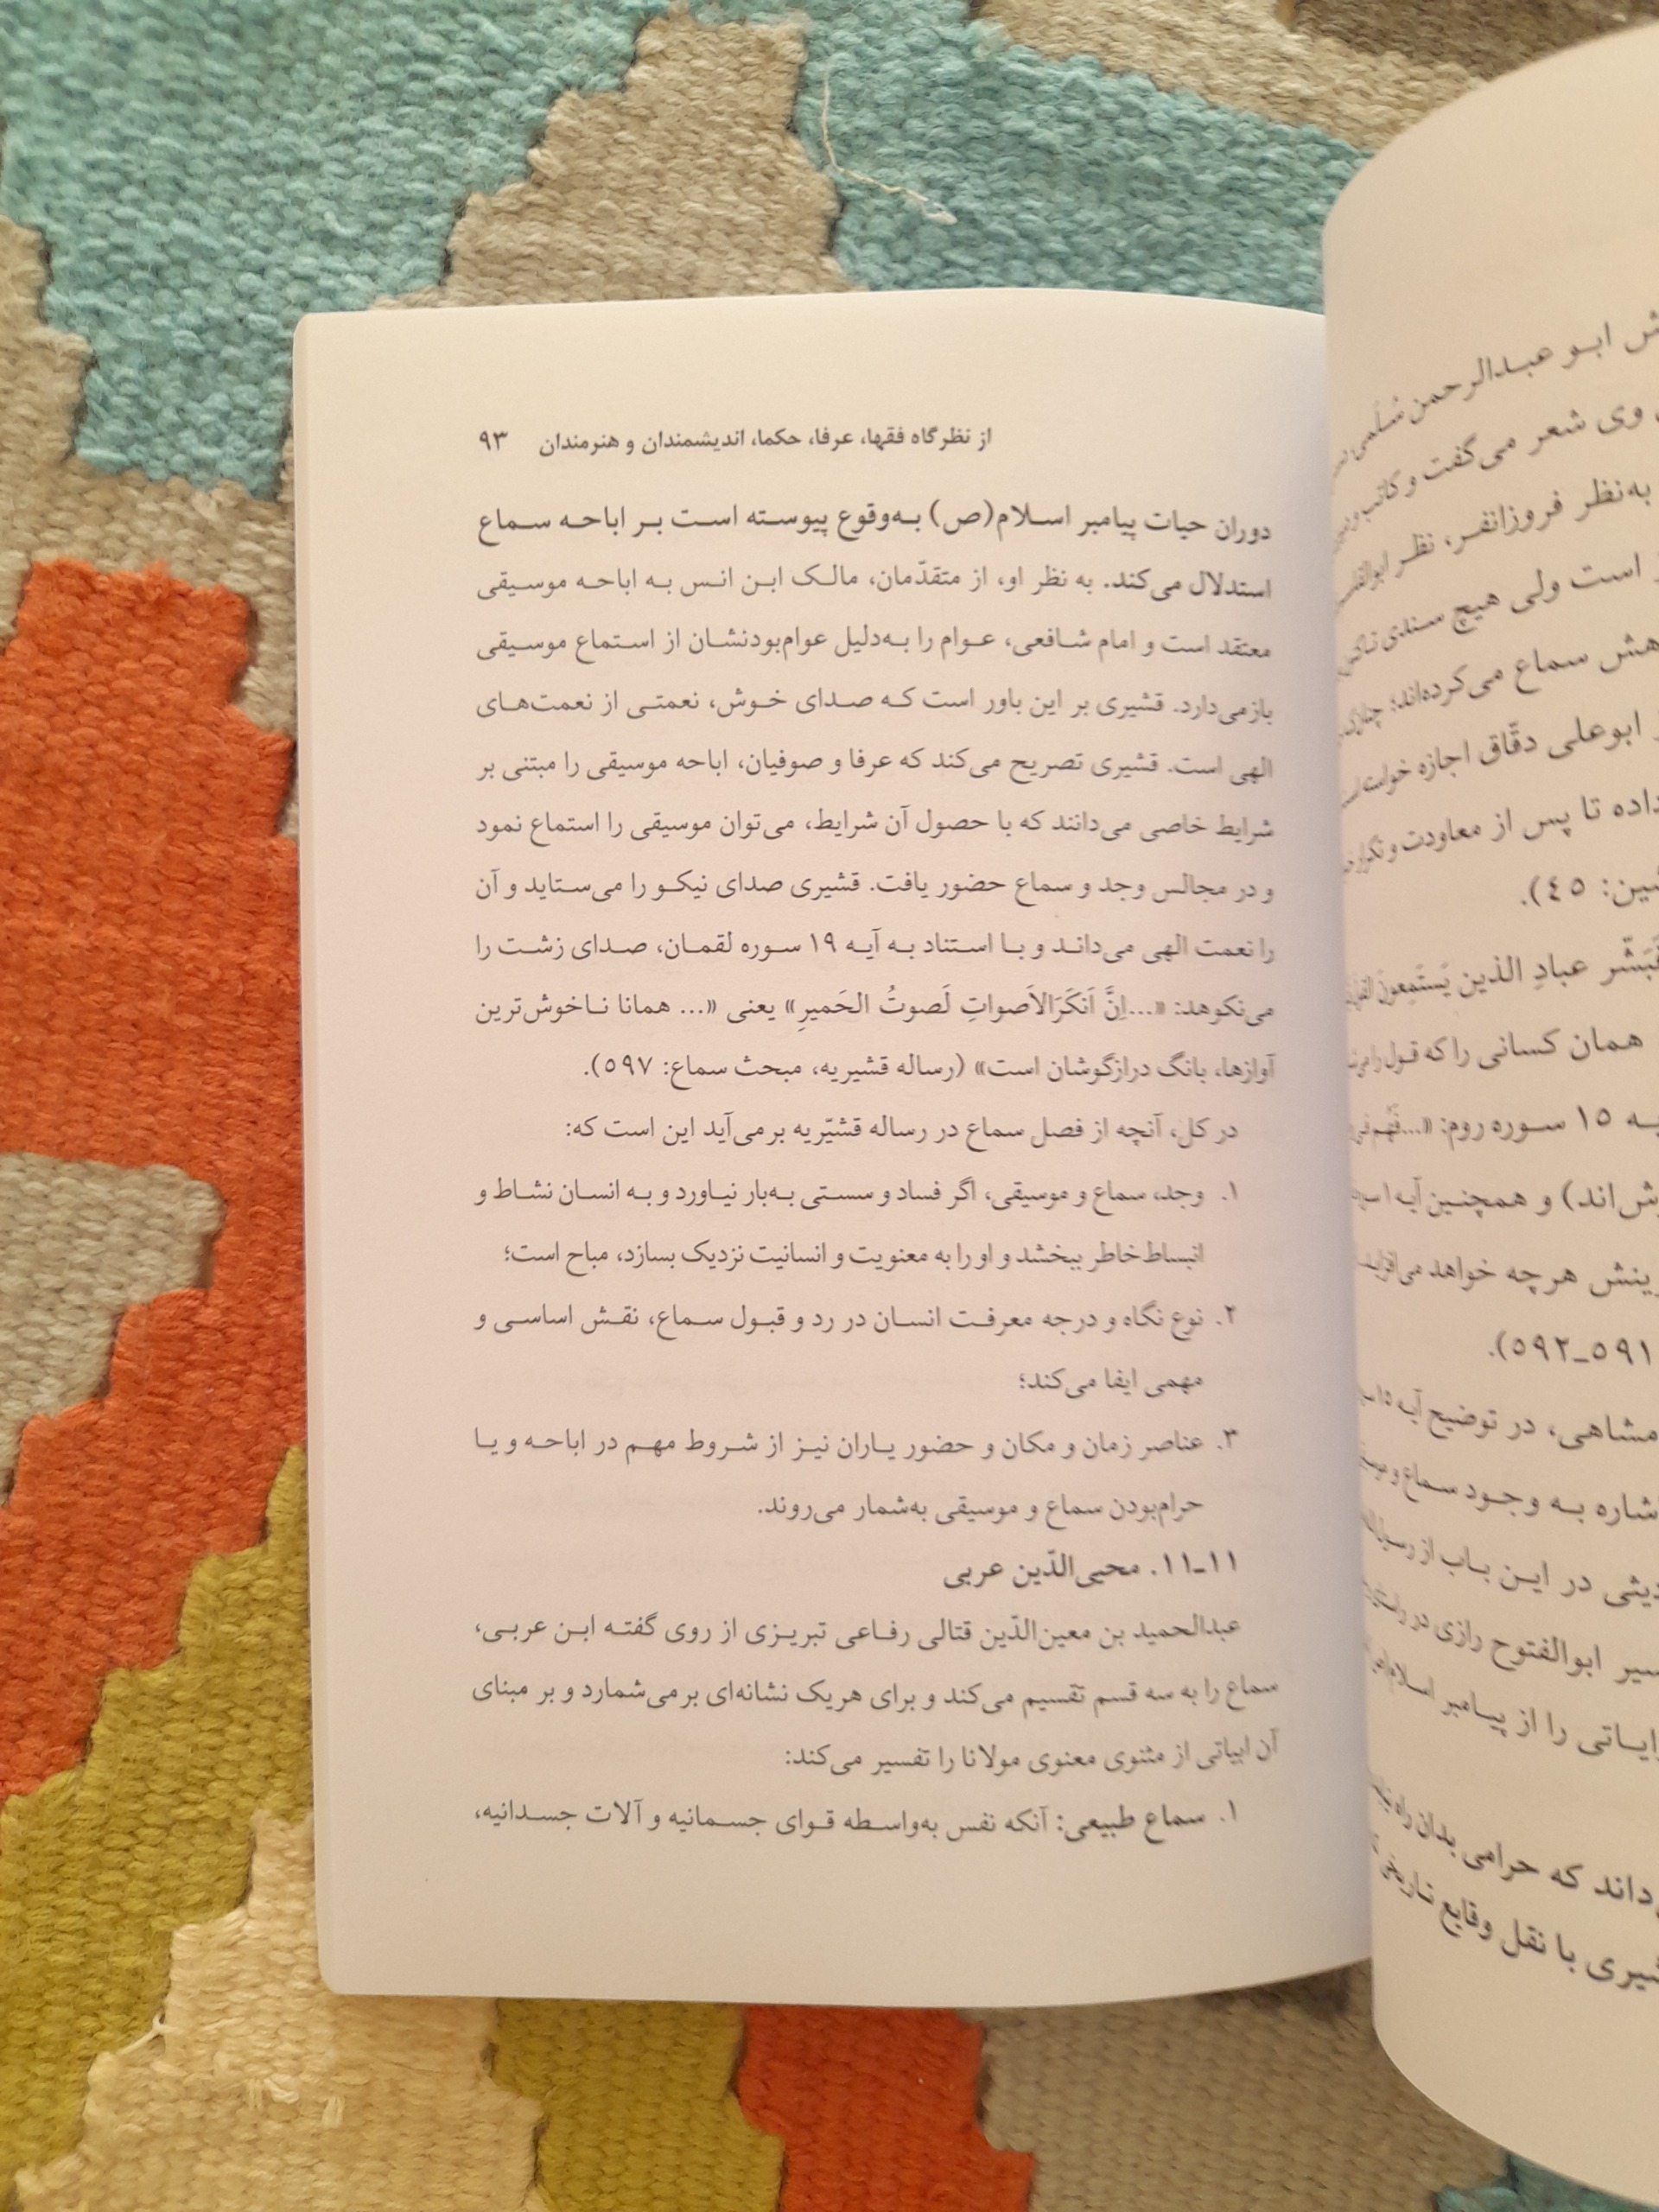 از نظرگاه فقها، عرفا، حکما، اندیشمندان و هنرمندان ۹۳
دوران حیات پیامبر اسلام(ص) به‌وقوع پیوسته است بر اباحه سماع
استدلال می‌کند. به نظر او، از متقدّمان، مالک ابن انس به اباحه موسیقی
معتقد است و امام شافعی، عوام را به‌دلیل عوام‌بودنشان از استماع موسیقی
بازمی‌دارد. قشیری بر این باور است که صدای خوش، نعمتی از نعمت‌های
الهی است. قشیری تصریح می‌کند که عرفا و صوفیان، اباحه موسیقی را مبتنی بر
شرایط خاصی می‌دانند که با حصول آن شرایط، می‌توان موسیقی را استماع نمود
و در مجالس وجد و سماع حضور یافت. قشیری صدای نیکو را می‌ستاید و آن
را نعمت الهی می‌داند و با استناد به آیه ۱۹ سوره لقمان، صدای زشت را
می‌نکوهد: «...اِنَّ اَنکَرَالاَصواتِ لَصوتُ الحَمیرِ» یعنی «... همانا ناخوش‌ترین
آوازها، بانگ درازگوشان است» (رساله قشیریه، مبحث سماع: ۵۹۷).
در کل، آنچه از فصل سماع در رساله قشیّریه برمی‌آید این است که:
۱. وجد، سماع و موسیقی، اگر فساد و سستی به‌بار نیاورد و به انسان نشاط و
انبساط خاطر ببخشد و او را به معنویت و انسانیت نزدیک بسازد، مباح است؛
۲. نوع نگاه و درجه معرفت انسان در رد و قبول سماع، نقش اساسی و
مهمی ایفا می‌کند؛
۳. عناصر زمان و مکان و حضور یاران نیز از شروط مهم در اباحه و یا
حرام‌بودن سماع و موسیقی به‌شمار می‌روند.
۱۱-۱۱. محیی‌الدّین عربی
عبدالحمید بن معین‌الدّین قتالی رفاعی تبریزی از روی گفته ابن عربی،
سماع را به سه قسم تقسیم می‌کند و برای هریک نشانه‌ای برمی‌شمارد و بر مبنای
آن ابیاتی از مثنوی معنوی مولانا را تفسیر می‌کند:
۱. سماع طبیعی: آنکه نفس به‌واسطه قوای جسمانیه و آلات جسدانیه،
ابو عبدالرحمن سُلّمی
وی شعر می‌گفت و کاتب
به‌نظر فروزانفر، نظر
است ولی هیچ سندی
سماع می‌کرده‌اند؛
ابوعلی دقّاق اجازه خواسته
داده تا پس از معاودت و
۴۵).
عبادِ الذین یَستَمِعونَ
همان کسانی را که قول را
۱۵ سوره روم: «...
و همچنین آیه ۱
هرچه خواهد می‌افزاید
۵۹۱-۵۹۲).
در توضیح آیه ۱۵
به وجود سماع و
در این باب از
ابوالفتوح رازی در
را از پیامبر اسلام
که حرامی بدان راه
با نقل وقایع تاریخی